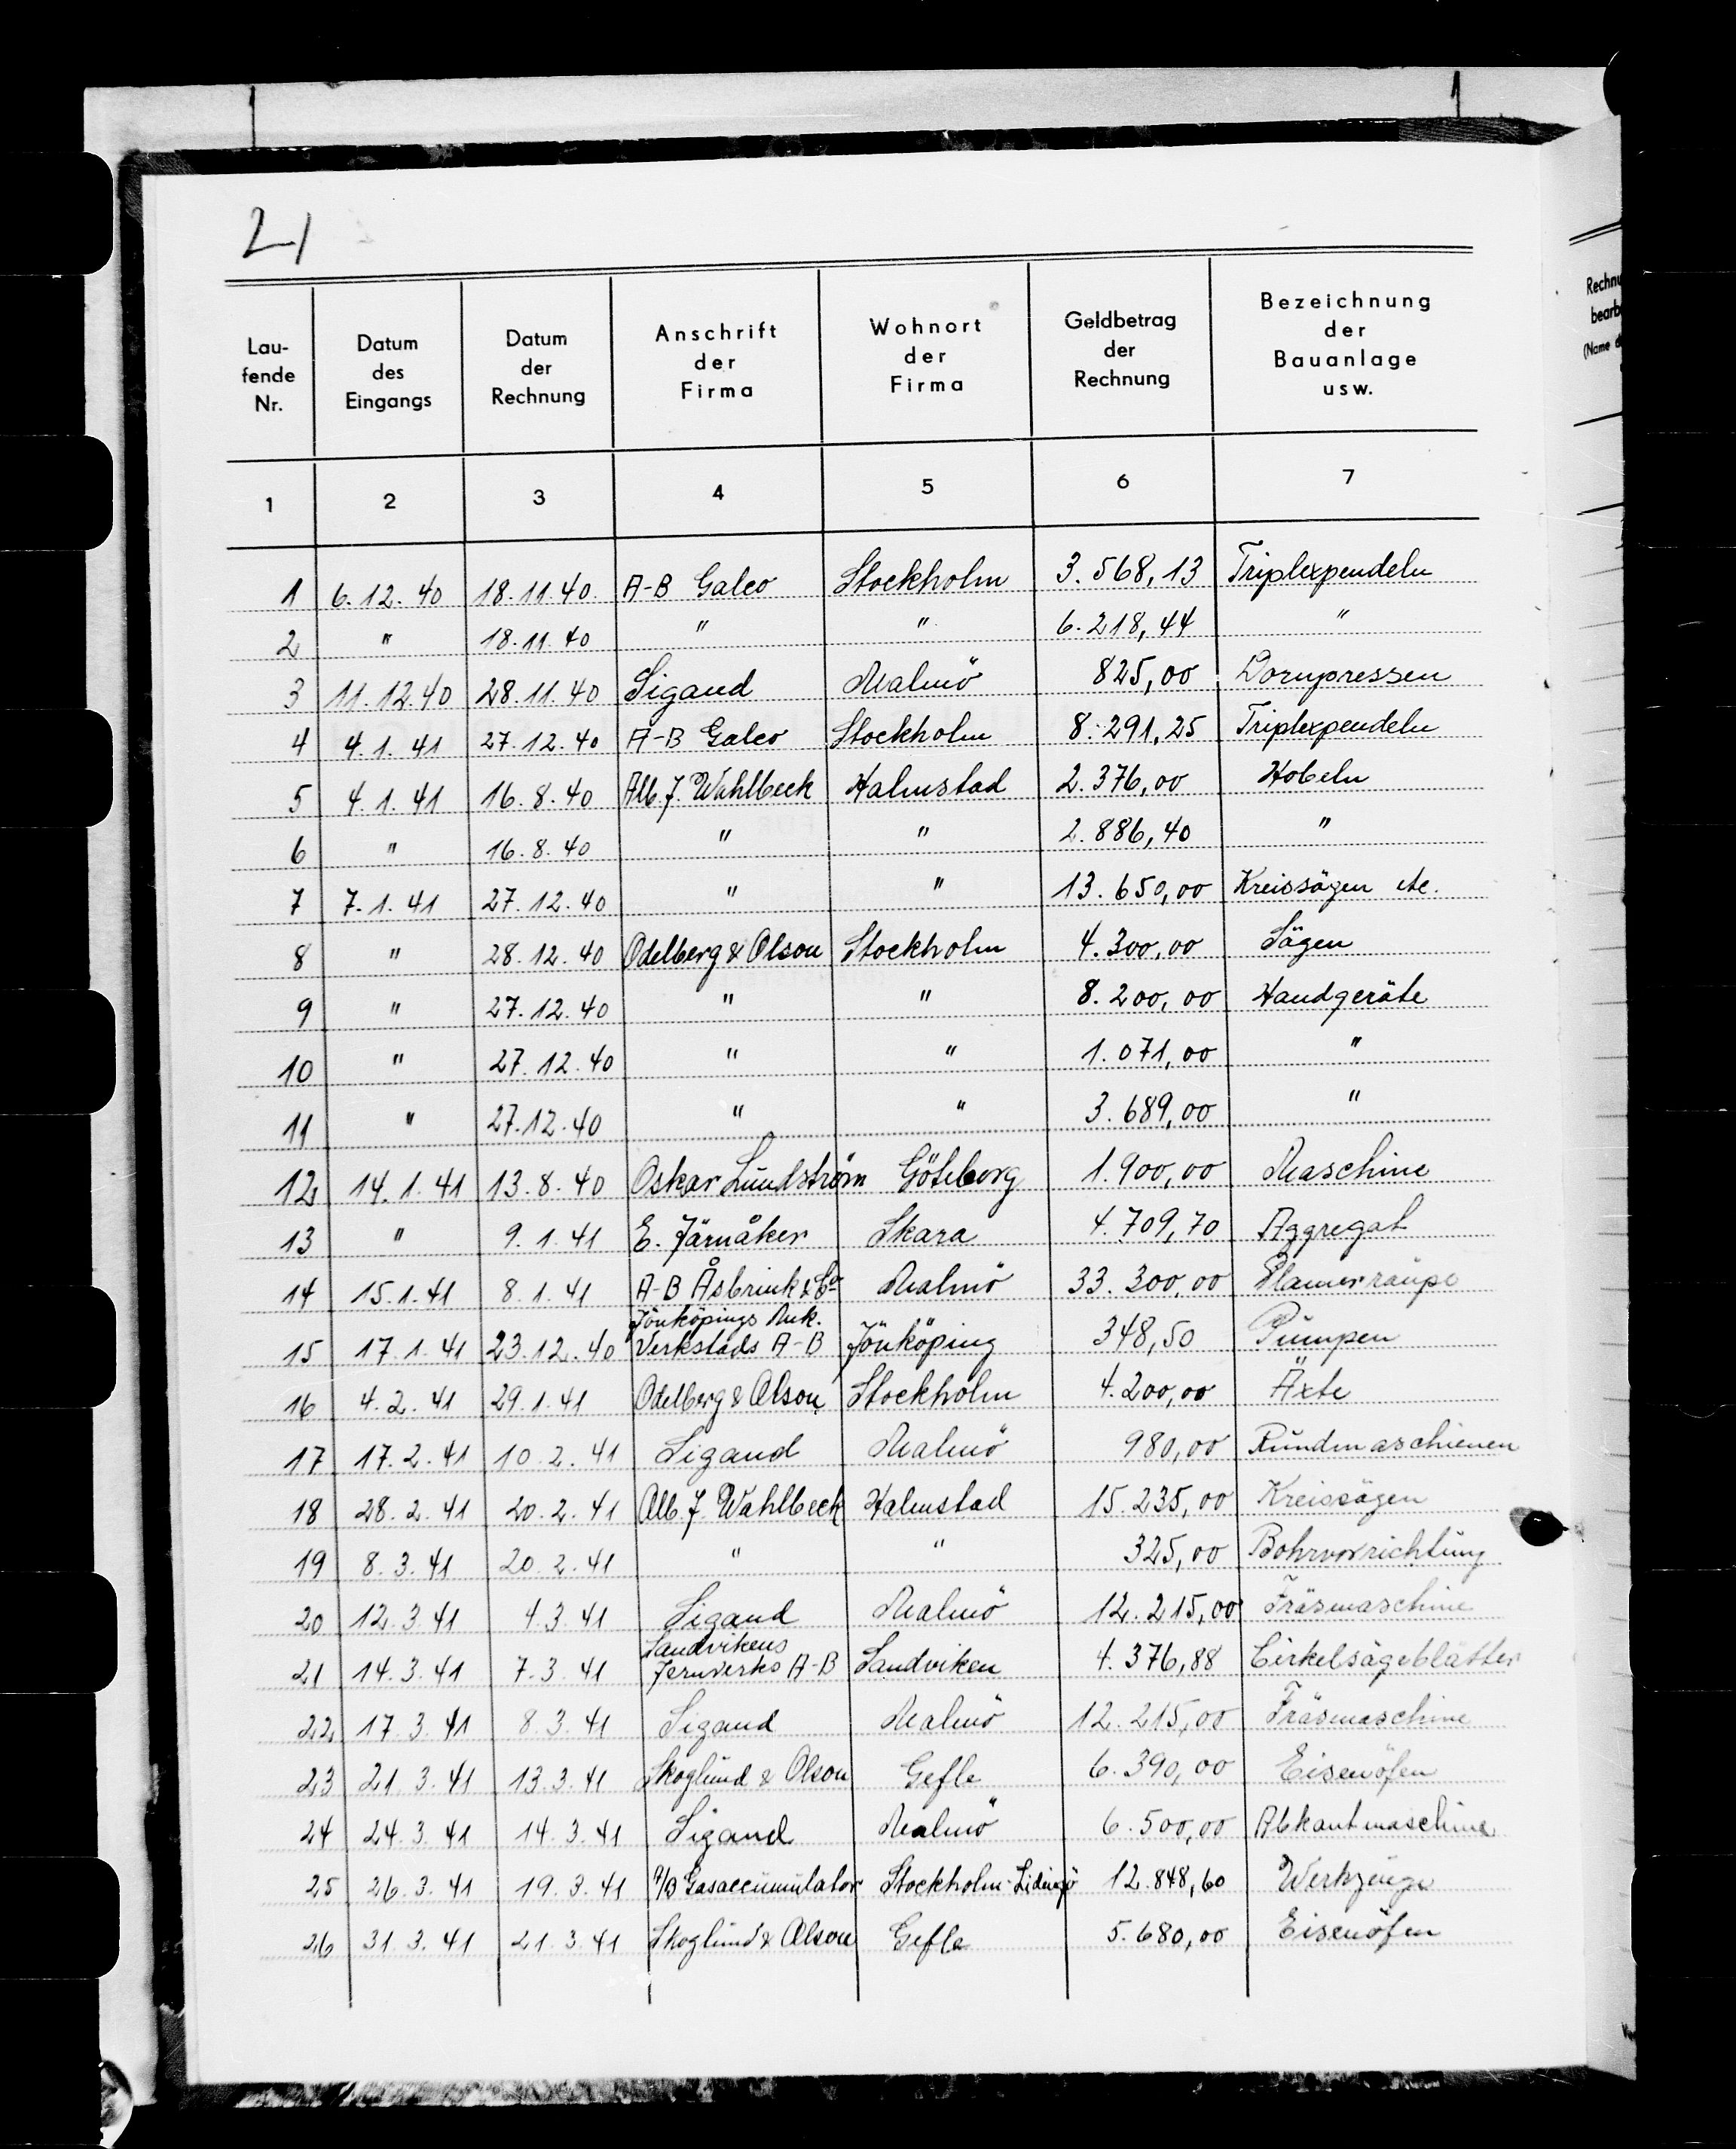 21
Lau-
fende
Nr.
Datum
des
Eingangs
Datum
der
Rechnung
Anschrift
der
Firma
Wohnort
der
Firma
Geldbetrag
der
Rechnung
Bezeichnung
der
Bauanlage
usw.
1 2 3 4 5 6 7
1 6.12.40 18.11.40. A-B Galco Stockholm 3.568,13 Triplexpendeln
2 " 18.11.40 " " 6.218,44 "
3 11.12.40 28.11.40 Sigand Malmö 825,00 Dornpressen
4 4.1.41 27.12.40 A-B Galco Stockholm 8.291,25 Triplexpendeln
5 4.1.41 16.8.40 Alb. J. Wahlbeck Halmstad 2.376,00 Hobeln
6 " 16.8.40 " " 2.886,40 "
7 7.1.41 27.12.40 " " 13.650,00 Kreissägen etc.
8 " 28.12.40 Odelberg & Olson Stockholm 4.300,00 Sägen
9 " 27.12.40 " " 8.200,00 Handgeräte
10 " 27.12.40 " " 1.071,00 "
11 " 27.12.40 " " 3.689,00 "
12 14.1.41 13.8.40 Oskar Lundström Göteborg 1.900,00 Maschine
13 " 9.1.41 E. Järnåker Skara 4.709,70 Aggregat
14 15.1.41 8.1.41 A-B Åsbrink & Co Malmö 33.300,00
Jönköpings Mek.
15 17.1.41 23.12.40 Verkstads A-B Jönköping 348,50 Pumpen
16 4.2.41 29.1.41 Odelberg & Olson Stockholm 4.200,00 Äxte
17 17.2.41 10.2.41 Sigand Malmö 980,00 Rundmaschienen
18 28.2.41 20.2.41 Alb. J. Wahlbeck Halmstad 15.235,00 Kreissägen
19 8.3.41 20.2.41 " " 325,00 Bohrvorrichtung
20 12.3.41 4.3.41 Sigand Malmö 12.215,00 Fräsmaschine
Sandvikens
21 14.3.41 7.3.41 Jernverks A-B Sandviken 4.376,88 Cirkelsägeblätter
22 17.3.41 8.3.41 Sigand Malmö 12.215,00 Fräsmaschine
23 21.3.41 13.3.41 Skoglund & Olson Gefle 6.390,00 Eisenöfen
24 24.3.41 14.3.41 Sigand Malmö 6.500,00 Abkantmaschine
25 26.3.41 19.3.41 A/B Gasaccumulator Stockholm-Lidingö 12.848,60 Werkzeuge
26 31.3.41 21.3.41 Skoglund & Olson Gefle 5.680,00 Eisenöfen